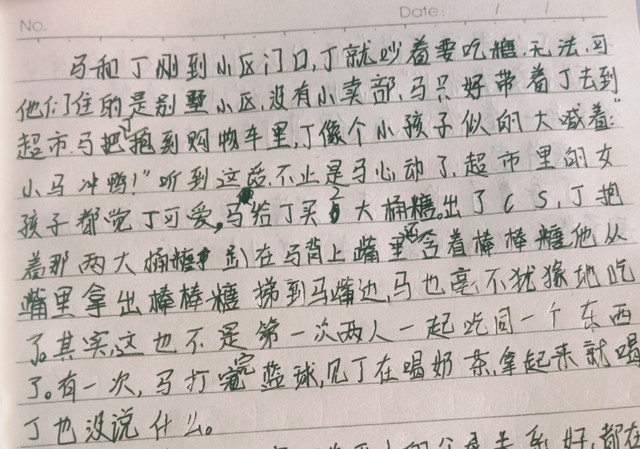 No.
Date: / /
马和丁刚到小区门口,丁就吵着要吃糖.无法,可
他们住的是别墅小区,没有小卖部.马只好带着丁去到
超市.马把丁抱到购物车里,丁像个小孩子似的大喊着:"
小马冲鸭!"听到这,不止是马心动了,超市里的女
孩子都觉丁可爱,马给丁买2大桶糖。出了CS,丁把
着那两大桶糖,趴在马背上嘴里还含着棒棒糖他从
嘴里拿出棒棒糖 递到马嘴边,马也毫不犹豫地吃
了。其实,这也不是第一次两人一起吃同一个东西
了。有一次,马打完篮球,见丁在喝奶茶,拿起来就喝
丁也没说什么。
系好,都在